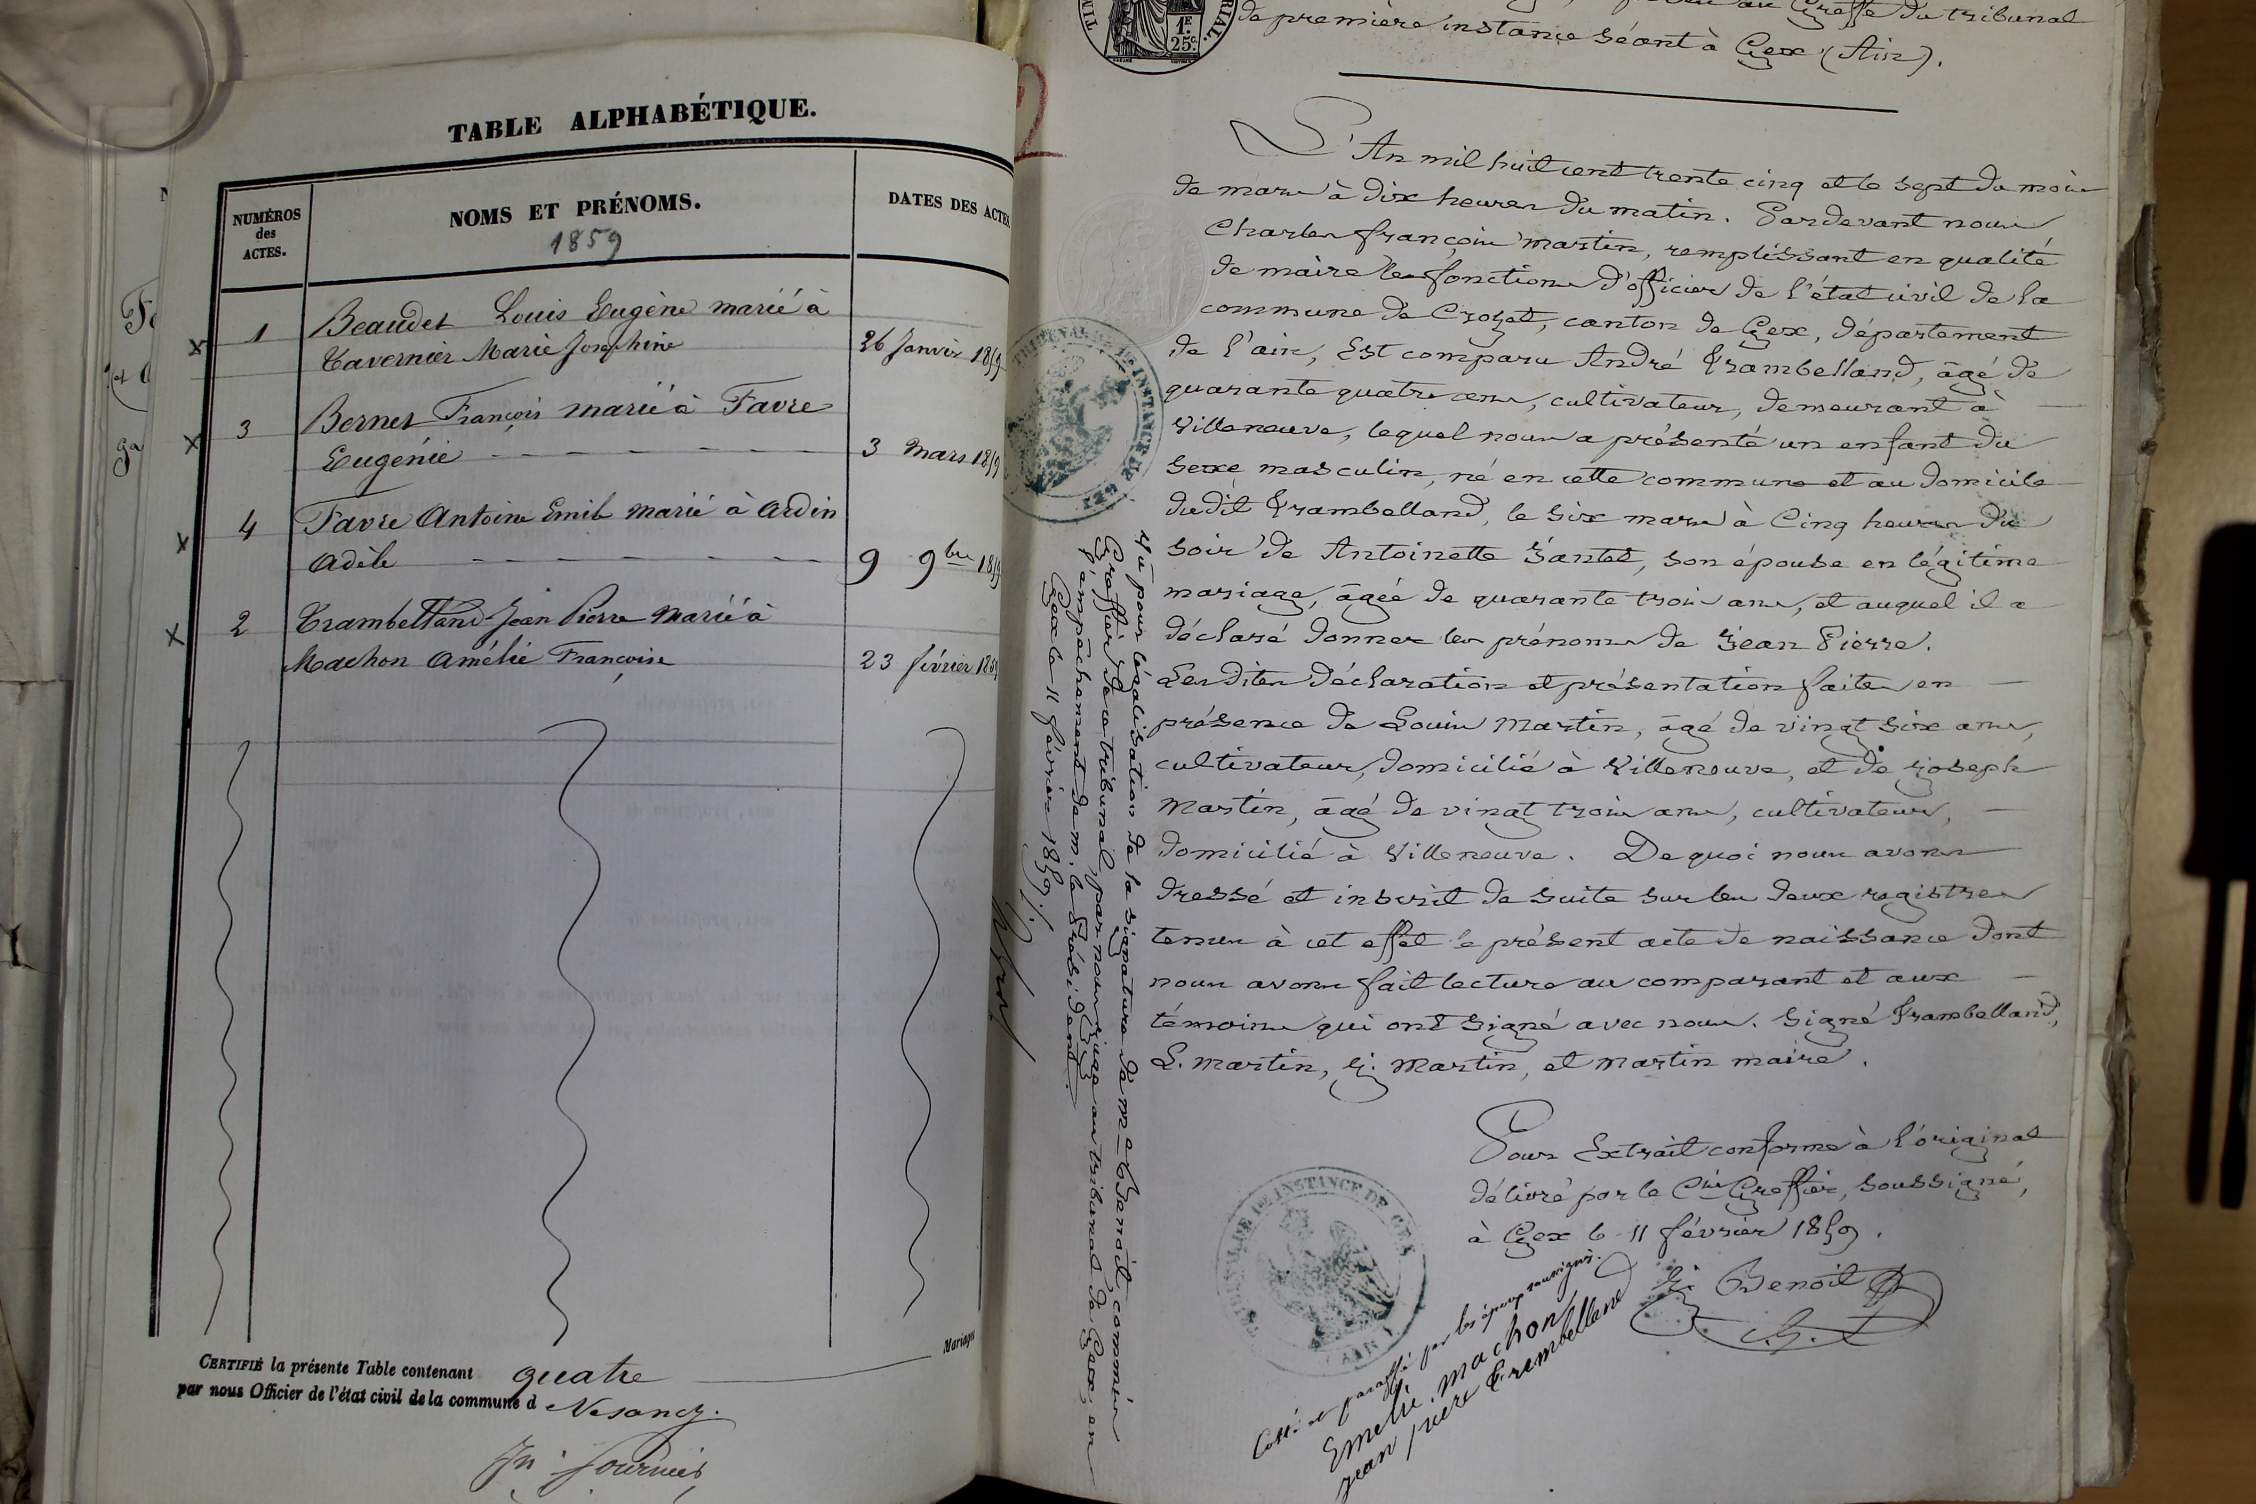 TABLE ALPHABÉTIQUE.
NUMÉROS
des
ACTES.
NOMS ET PRÉNOMS.
1859
DATES DES ACTES
1 Beaudet Louis Eugène marié à
Tavernier Marie Josephine 26 Janvier 1859
3 Bernet François marié à Favre
Eugénie 3 Mars 1859
4 Favre Antoine Emile marié à Ardin
Adèle 9 9bre 1859
2 Trambelland Jean Pierre marié à
Machon Amélie Françoise 23 février 1859
Mariages
CERTIFIÉ la présente Table contenant quatre
par nous Officier de l'état civil de la commune d Vesancy.
Fournier
1F.
25c.
Greffe du tribunal
de première instance séant à Gex (Ain).
L'An mil huit cent trente cinq et le sept du mois
de mars à dix heures du matin. Pardevant nous
Charles françois martin, remplissant en qualité
de maire les fonctions d'officier de l'état civil de la
commune de Crozet, canton de Gex, département
de l'ain, Est comparu André Trambelland, âgé de
quarante quatre ans, cultivateur, demeurant à
Villeneuve, lequel nous a présenté un enfant du
sexe masculin, né en cette commune et au domicile
dudit Trambelland, le six mars à Cinq heures du
soir de Antoinette Jantet, son épouse en légitime
mariage, âgée de quarante trois ans, et auquel il a
déclaré donner les prénoms de Jean Pierre.
Les dites déclaration et présentation faites en
présence de Louis Martin, âgé de vingt six ans,
cultivateur, domicilié à Villeneuve, et de Joseph
Martin, âgé de vingt trois ans, cultivateur,
domicilié à Villeneuve. De quoi nous avons
dressé et inscrit de suite sur les deux registres
tenus à cet effet le présent acte de naissance dont
nous avons fait lecture au comparant et aux
témoins qui ont signé avec nous. Signé Trambelland,
L. Martin, J. Martin, et Martin maire.
Pour Extrait conforme à l'original
délivré par le Cis Greffier, soussigné,
à Gex le 11 février 1859.
J. Benoit
Coté et paraffé par les époux soussignés.
Emelie machon
jean piere trembelland
Vu pour légalisation de la signature de Me Benoit, commis
Greffier de ce tribunal, par nous juge au tribunal de Gex, en
l'empêchement de m. le Président.
Gex le 11 février 1859.
TRIBUNAL DE 1re INSTANCE DE GEX
TRIBUNAL DE 1re INSTANCE DE GEX
(AIN)